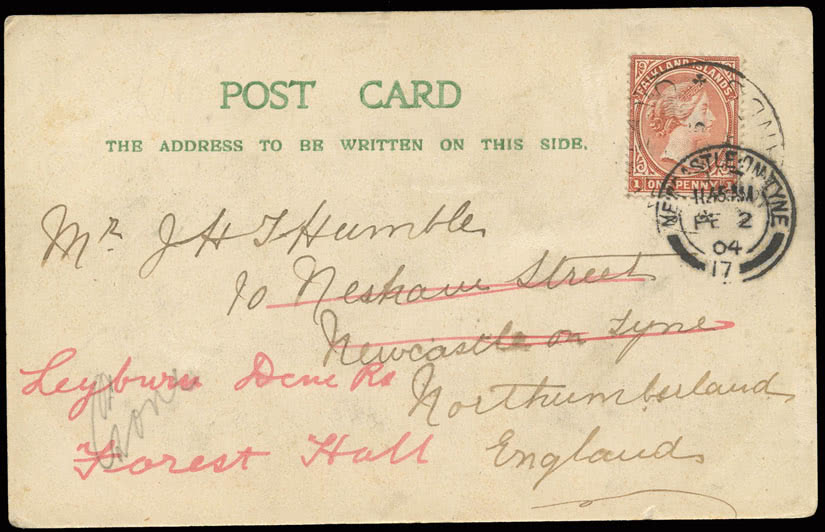 POST CARD
THE ADDRESS TO BE WRITTEN ON THIS SIDE.
FALKLAND ISLANDS
1 ONE PENNY 1
NEWCASTLE-ON-TYNE
FE 2
04
17
Mr J H T Humble
10 Nesham Street
Newcastle on Tyne
Leyburn Dene Rd
Northumberland
Forest Hall
England